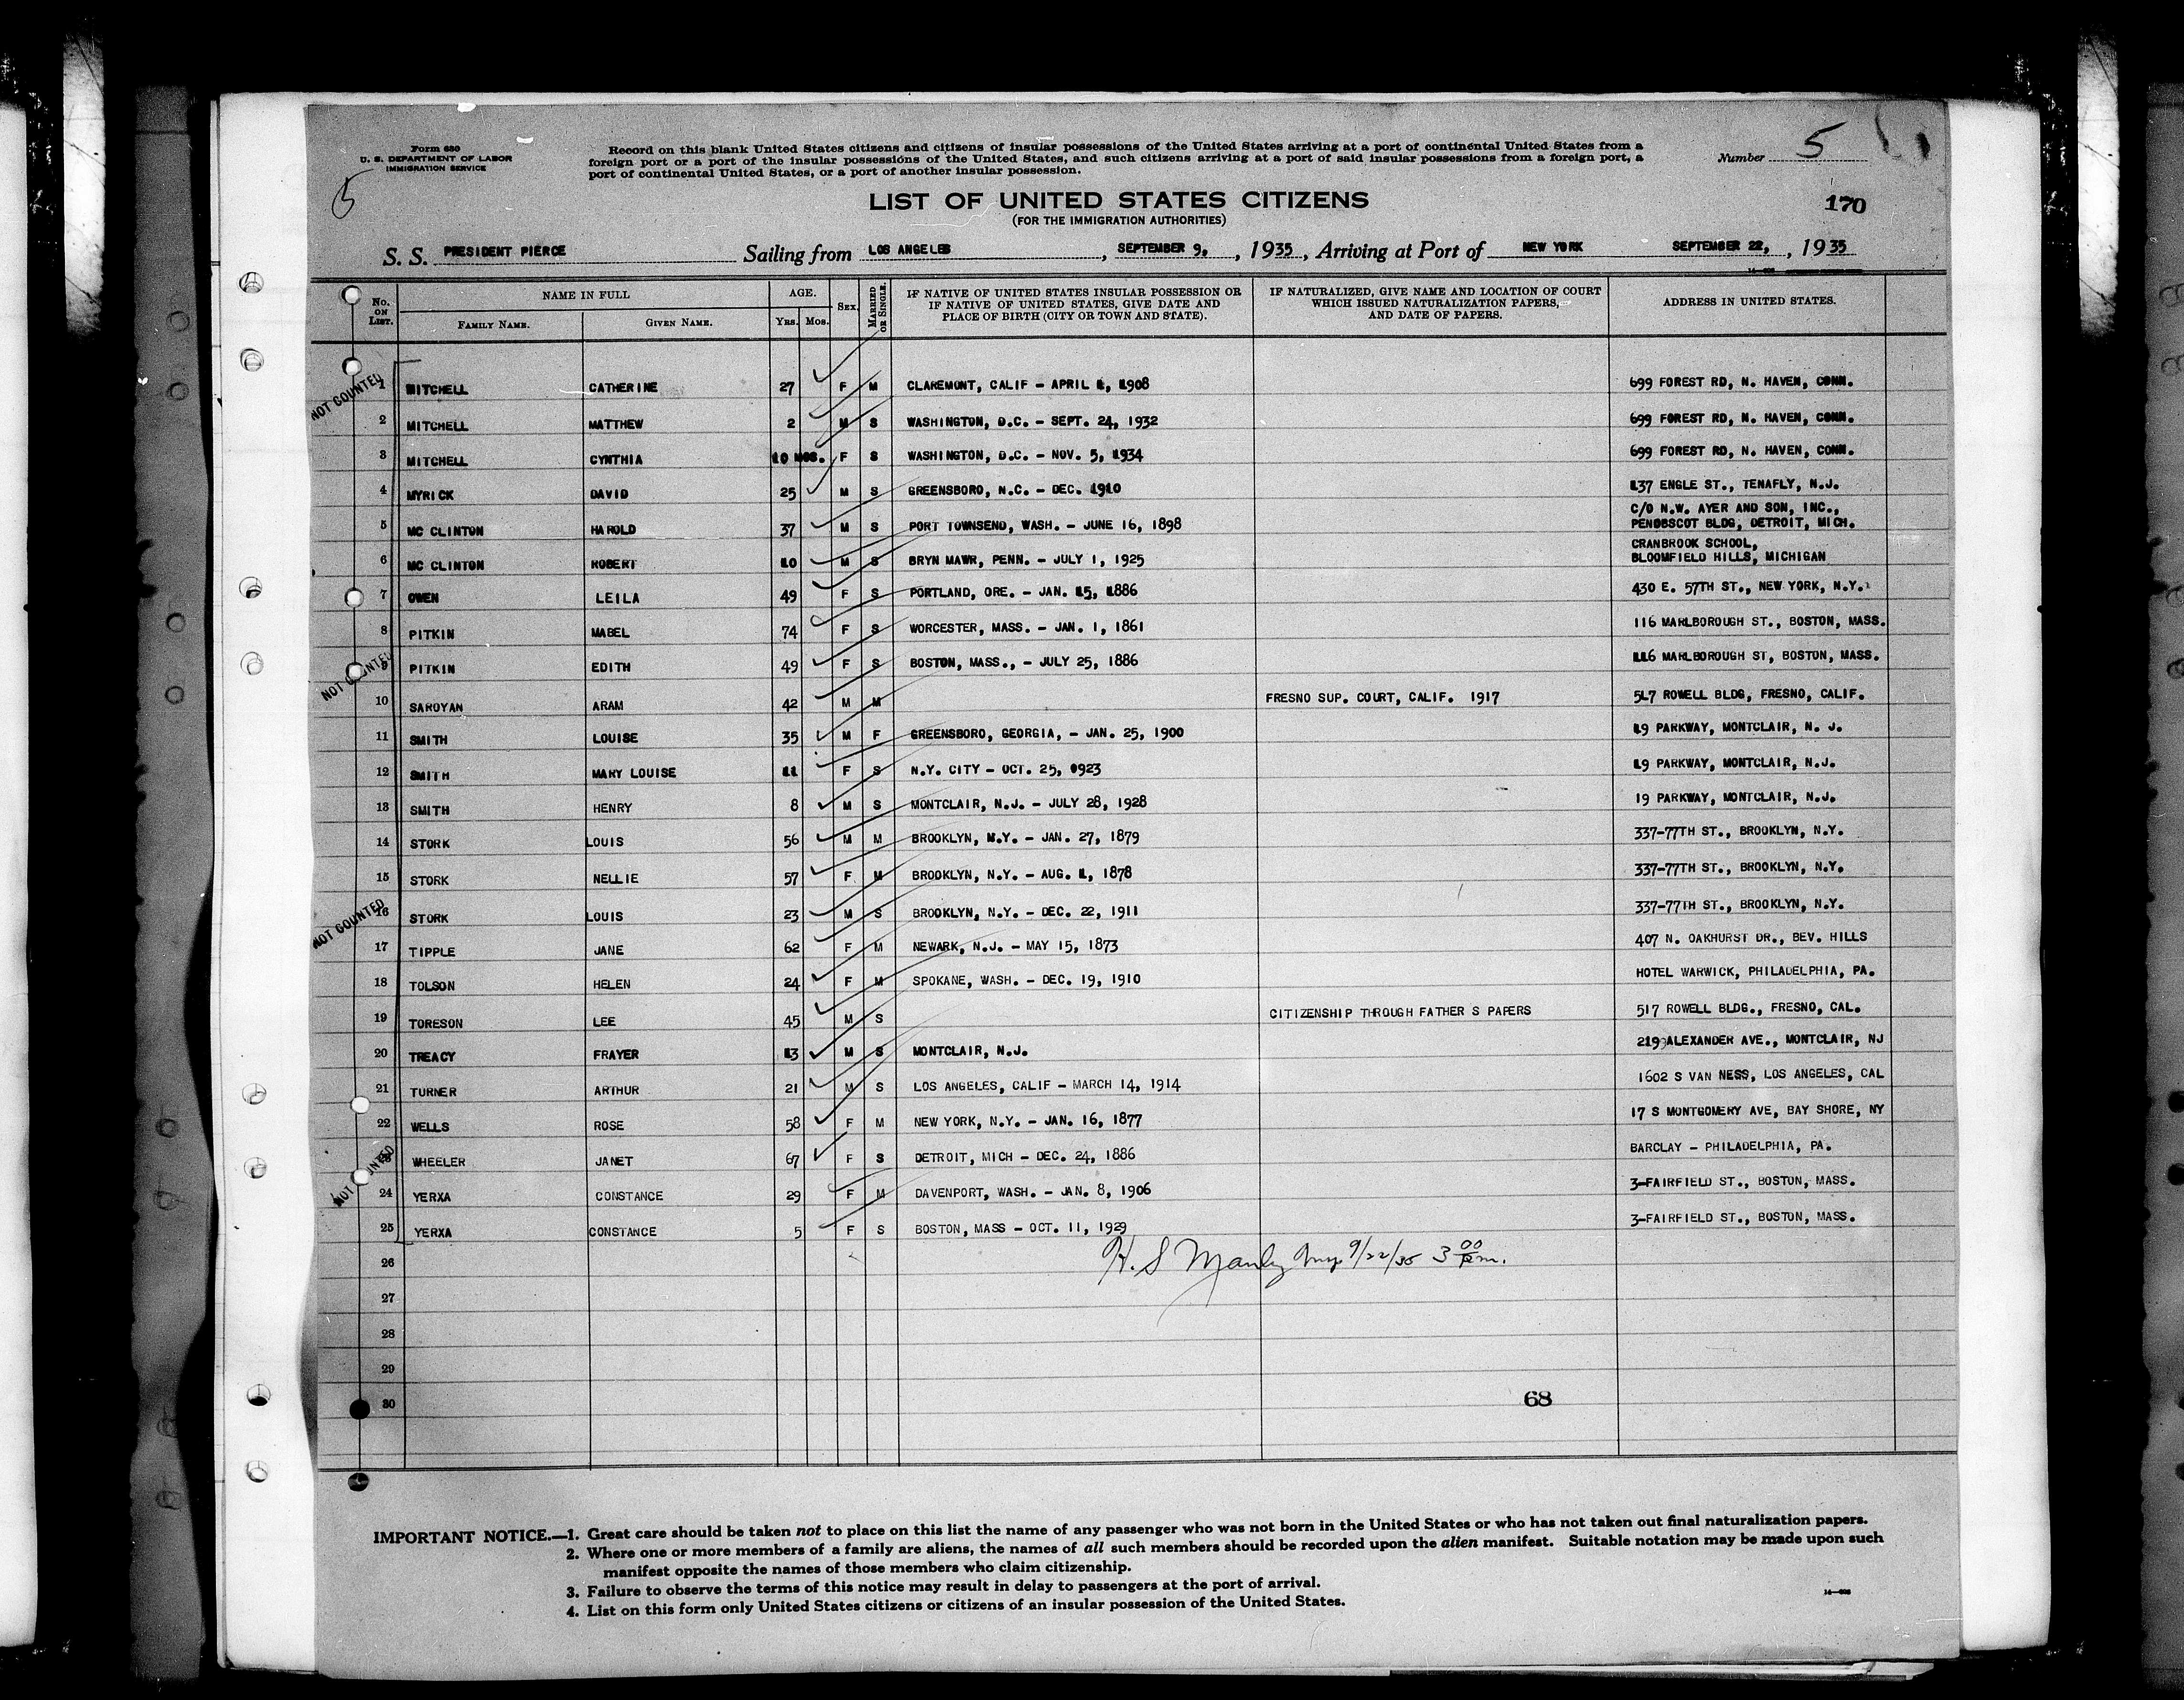 Form 630
U. S. DEPARTMENT OF LABOR
IMMIGRATION SERVICE
5
Record on this blank United States citizens and citizens of insular possessions of the United States arriving at a port of continental United States from a
foreign port or a port of the insular possessions of the United States, and such citizens arriving at a port of said insular possessions from a foreign port, a
port of continental United States, or a port of another insular possession.
Number 5
LIST OF UNITED STATES CITIZENS
(FOR THE IMMIGRATION AUTHORITIES)
170
S. S. PRESIDENT PIERCE Sailing from LOS ANGELES, SEPTEMBER 9, , 1935, Arriving at Port of NEW YORK SEPTEMBER 22, , 1935
No. ON LIST. NAME IN FULL FAMILY NAME. GIVEN NAME. AGE. YRS. MOS. SEX. MARRIED OR SINGLE. IF NATIVE OF UNITED STATES INSULAR POSSESSION OR IF NATIVE OF UNITED STATES, GIVE DATE AND PLACE OF BIRTH (CITY OR TOWN AND STATE). IF NATURALIZED, GIVE NAME AND LOCATION OF COURT WHICH ISSUED NATURALIZATION PAPERS, AND DATE OF PAPERS. ADDRESS IN UNITED STATES.
NOT COUNTED
1 MITCHELL CATHERINE 27 F M CLAREMONT, CALIF - APRIL 1, 1908 699 FOREST RD, N. HAVEN, CONN.
2 MITCHELL MATTHEW 2 M S WASHINGTON, D.C. - SEPT. 24, 1932 699 FOREST RD, N. HAVEN, CONN.
3 MITCHELL CYNTHIA 10 MOS. F S WASHINGTON, D.C. - NOV. 5, 1934 699 FOREST RD, N. HAVEN, CONN.
4 MYRICK DAVID 25 M S GREENSBORO, N.C. - DEC. 1910 137 ENGLE ST., TENAFLY, N.J.
5 MC CLINTON HAROLD 37 M S PORT TOWNSEND, WASH. - JUNE 16, 1898 C/O N.W. AYER AND SON, INC., PENOBSCOT BLDG, DETROIT, MICH.
6 MC CLINTON ROBERT 10 M S BRYN MAWR, PENN. - JULY 1, 1925 CRANBROOK SCHOOL, BLOOMFIELD HILLS, MICHIGAN
7 OWEN LEILA 49 F S PORTLAND, ORE. - JAN. 15, 1886 430 E. 57TH ST., NEW YORK, N.Y.
8 PITKIN MABEL 74 F S WORCESTER, MASS. - JAN. 1, 1861 116 MARLBOROUGH ST., BOSTON, MASS.
NOT COUNTED
9 PITKIN EDITH 49 F S BOSTON, MASS., - JULY 25, 1886 116 MARLBOROUGH ST, BOSTON, MASS.
10 SAROYAN ARAM 42 M M FRESNO SUP. COURT, CALIF. 1917 517 ROWELL BLDG, FRESNO, CALIF.
11 SMITH LOUISE 35 M F GREENSBORO, GEORGIA, - JAN. 25, 1900 19 PARKWAY, MONTCLAIR, N. J.
12 SMITH MARY LOUISE 11 F S N.Y. CITY - OCT. 25, 0923 19 PARKWAY, MONTCLAIR, N.J.
13 SMITH HENRY 8 M S MONTCLAIR, N.J. - JULY 28, 1928 19 PARKWAY, MONTCLAIR, N.J.
14 STORK LOUIS 56 M M BROOKLYN, N.Y. - JAN. 27, 1879 337-77TH ST., BROOKLYN, N.Y.
15 STORK NELLIE 57 F M BROOKLYN, N.Y. - AUG. 1, 1878 337-77TH ST., BROOKLYN, N.Y.
NOT COUNTED
16 STORK LOUIS 23 M S BROOKLYN, N.Y. - DEC. 22, 1911 337-77TH ST., BROOKLYN, N.Y.
17 TIPPLE JANE 62 F M NEWARK, N.J. - MAY 15, 1873 407 N. OAKHURST DR., BEV. HILLS
18 TOLSON HELEN 24 F M SPOKANE, WASH. - DEC. 19, 1910 HOTEL WARWICK, PHILADELPHIA, PA.
19 TORESON LEE 45 M S CITIZENSHIP THROUGH FATHER S PAPERS 517 ROWELL BLDG., FRESNO, CAL.
20 TREACY FRAYER 13 M S MONTCLAIR, N.J. 219 ALEXANDER AVE., MONTCLAIR, NJ
21 TURNER ARTHUR 21 M S LOS ANGELES, CALIF - MARCH 14, 1914 1602 S VAN NESS, LOS ANGELES, CAL
22 WELLS ROSE 58 F M NEW YORK, N.Y. - JAN. 16, 1877 17 S MONTGOMERY AVE, BAY SHORE, NY
NOT COUNTED
23 WHEELER JANET 67 F S DETROIT, MICH - DEC. 24, 1886 BARCLAY - PHILADELPHIA, PA.
24 YERXA CONSTANCE 29 F M DAVENPORT, WASH. - JAN. 8, 1906 3-FAIRFIELD ST., BOSTON, MASS.
25 YERXA CONSTANCE 5 F S BOSTON, MASS - OCT. 11, 1929 3-FAIRFIELD ST., BOSTON, MASS.
26 H. S Manly 9/22/35 3 00 P.m.
27
28
29
30 68
IMPORTANT NOTICE.—1. Great care should be taken not to place on this list the name of any passenger who was not born in the United States or who has not taken out final naturalization papers.
2. Where one or more members of a family are aliens, the names of all such members should be recorded upon the alien manifest. Suitable notation may be made upon such
manifest opposite the names of those members who claim citizenship.
3. Failure to observe the terms of this notice may result in delay to passengers at the port of arrival.
4. List on this form only United States citizens or citizens of an insular possession of the United States.